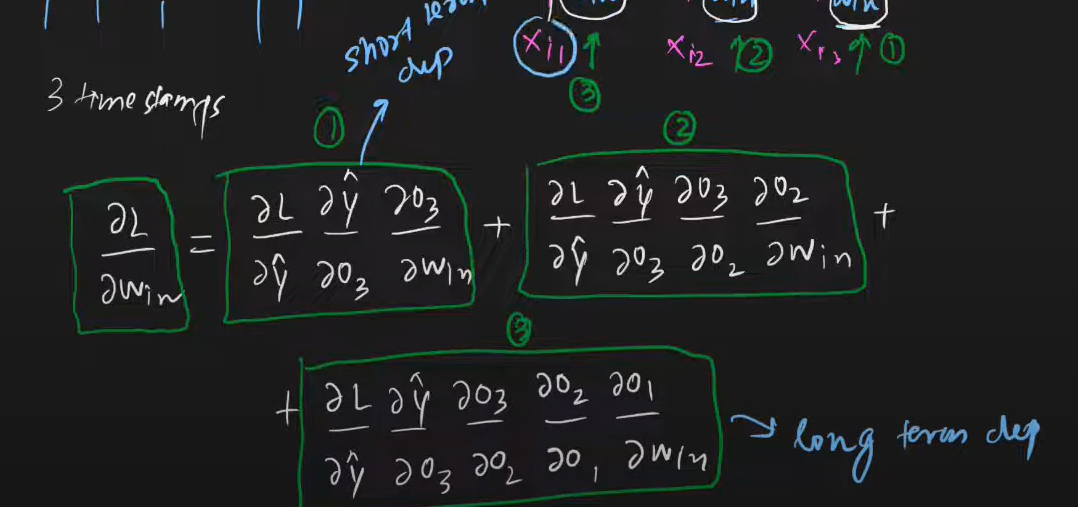 short term
dep
xi1 ↑ xi2 ↑② xi3 ↑①
③
3 timestamps
① ②
∂L/∂Win = ∂L/∂ŷ ∂ŷ/∂O3 ∂O3/∂Win + ∂L/∂ŷ ∂ŷ/∂O3 ∂O3/∂O2 ∂O2/∂Win +
③
+ ∂L/∂ŷ ∂ŷ/∂O3 ∂O3/∂O2 ∂O2/∂O1 ∂O1/∂Win → long term dep